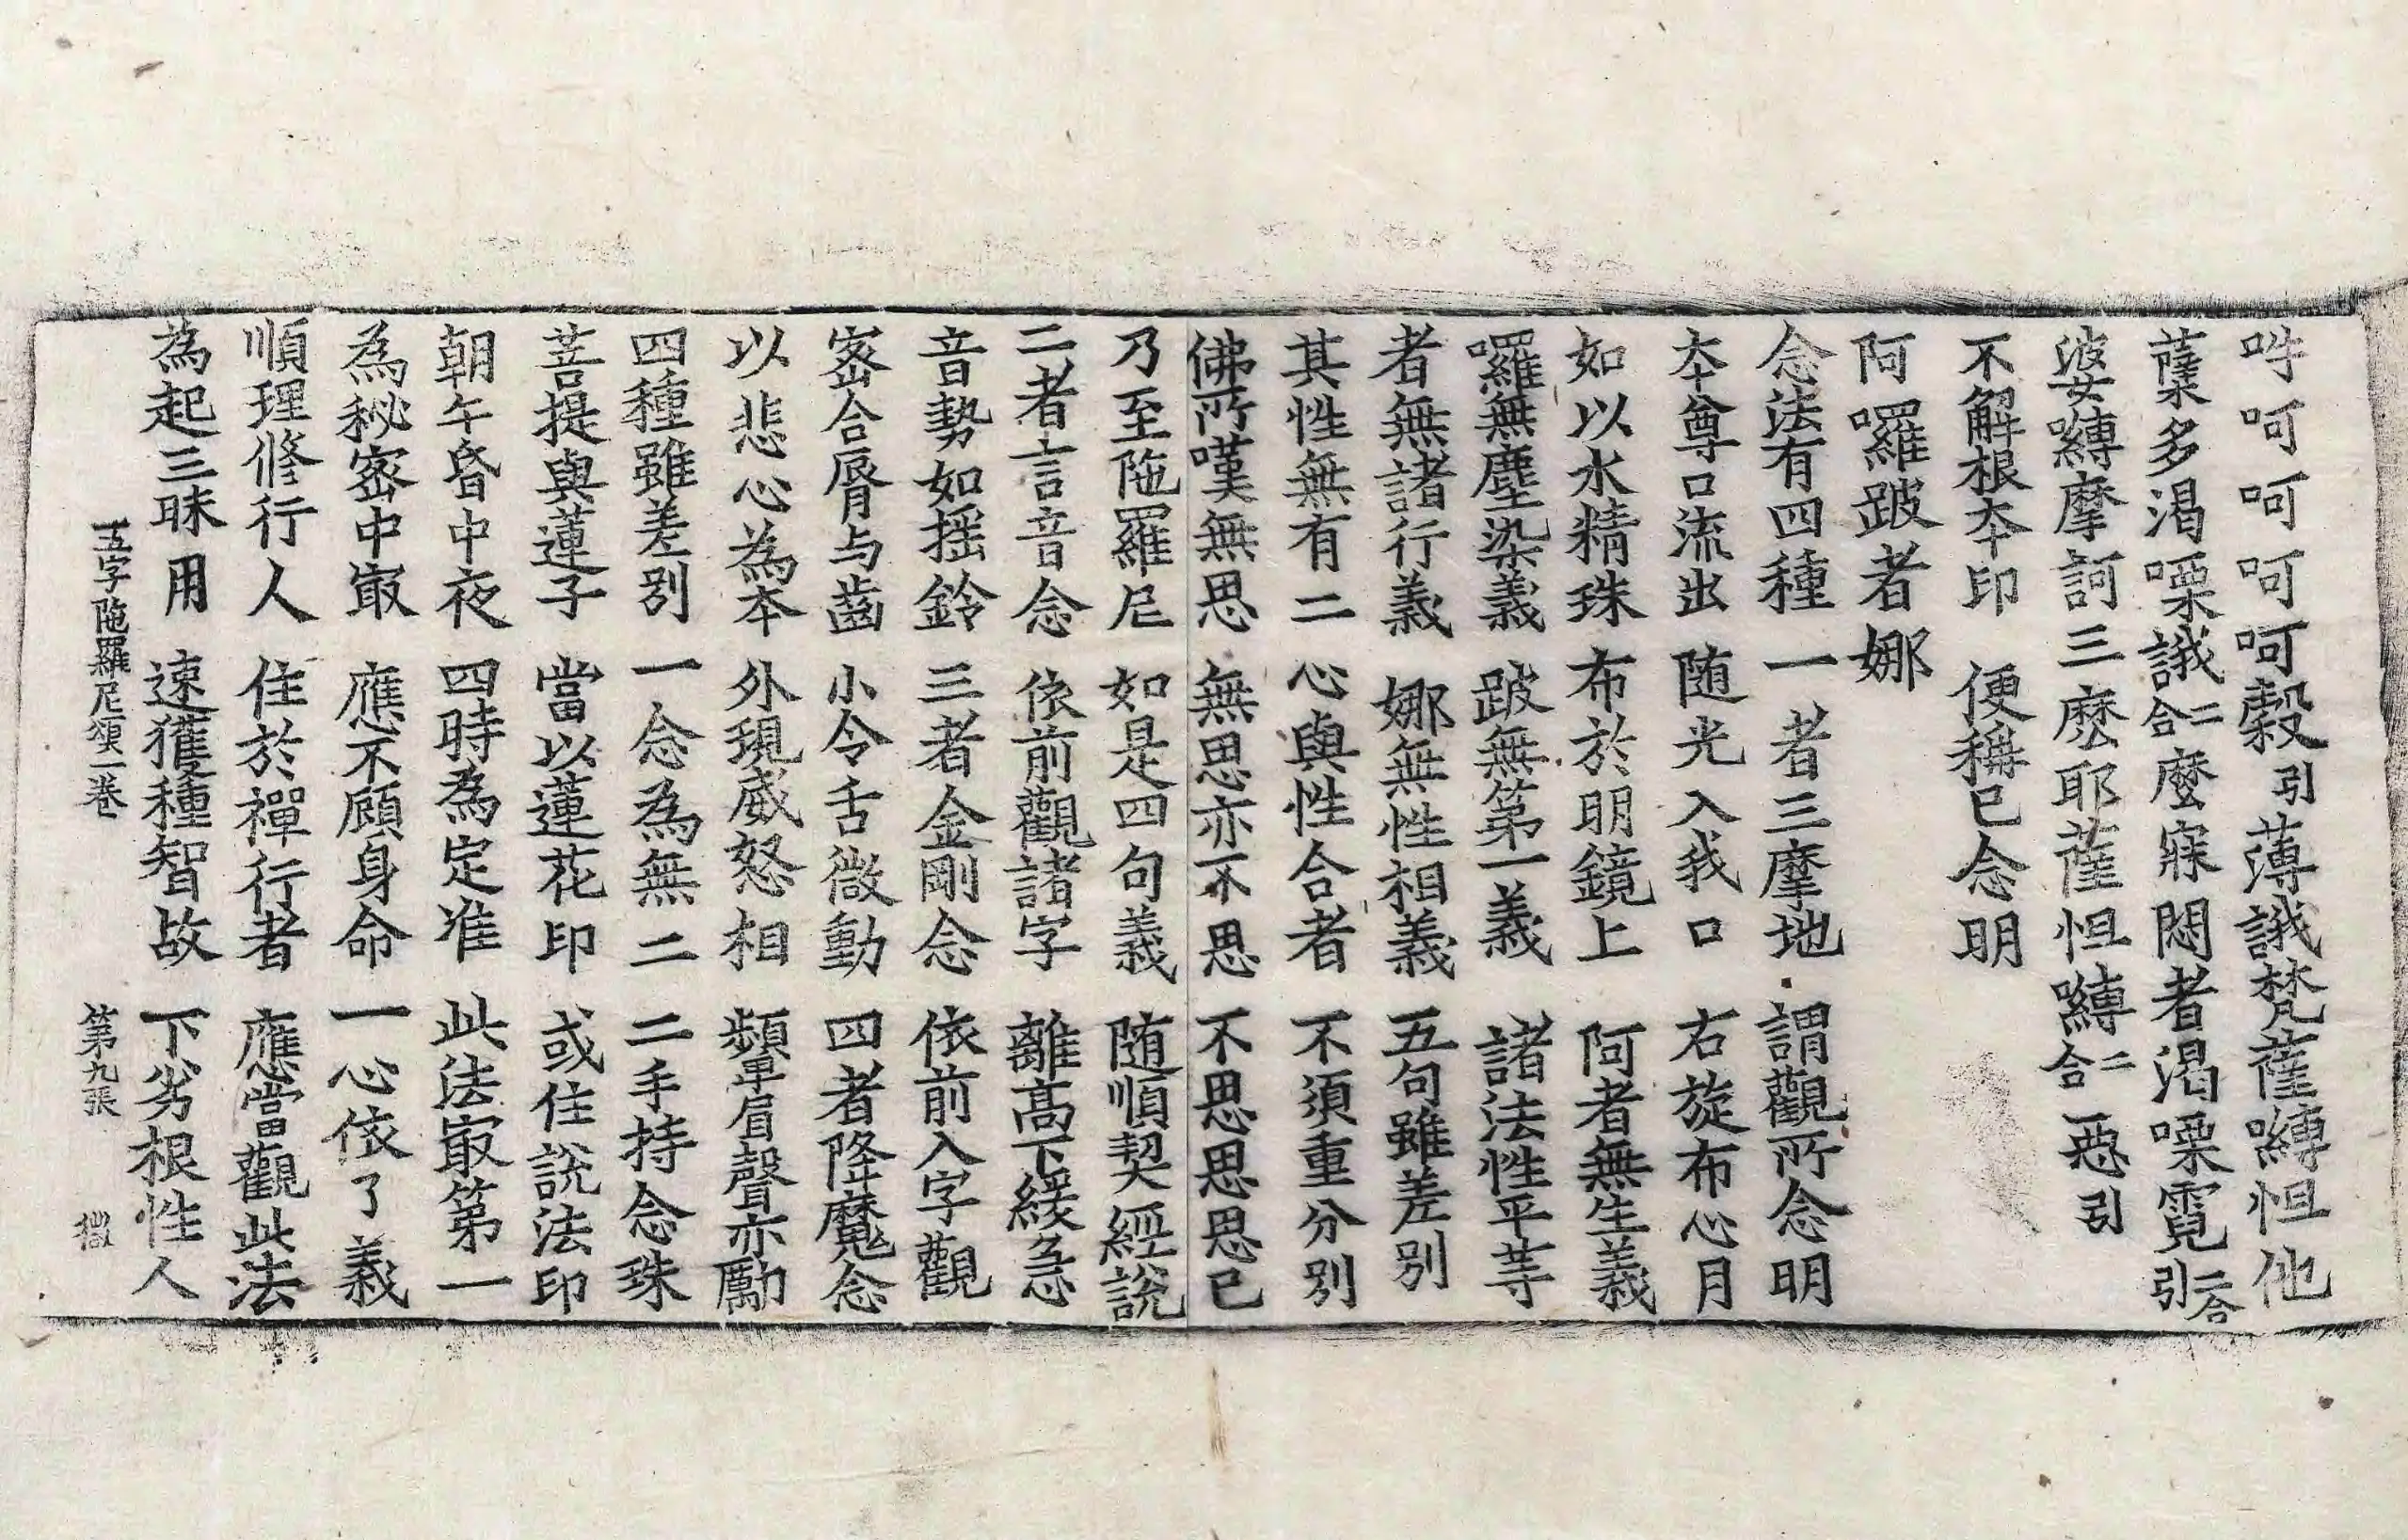 吽呵呵呵呵縠引薄誐梵薩嚩怛他
蘖多渴㗚誐二合麼寐悶者渴㗚霓二合引
婆嚩摩訶三麽耶薩怛嚩二合惡引
不解根本印　便稱己念明
阿囉跛者娜
念法有四種　一者三摩地　謂觀所念明
本尊口流出　随光入我口　右旋布心月
如以水精珠　布於明鏡上　阿者無生義
囉無塵染義　跛無第一義　諸法性平等
者無諸行義　娜無性相義　五句雖差別
其性無有二　心與性合者　不須重分別
佛所嘆無思　無思亦不思　不思思思已
乃至陁羅尼　如是四句義　随順契經說
二者言音念　依前觀諸字　離高下緩急
音勢如摇鈴　三者金剛念　依前入字觀
密合脣与齒　小令舌微動　四者降魔念
以悲心為本　外現威怒相　顰眉聲亦勵
四種雖差別　一念為無二　二手持念珠
菩提與蓮子　當以蓮花印　或住說法印
朝午昏中夜　四時為定准　此法㝡第一
為秘密中㝡　應不顧身命　一心依了義
順理修行人　住於禪行者　應當觀此法
為起三昧用　速獲種智故　下劣根性人
五字陁羅尼頌一卷　第九張